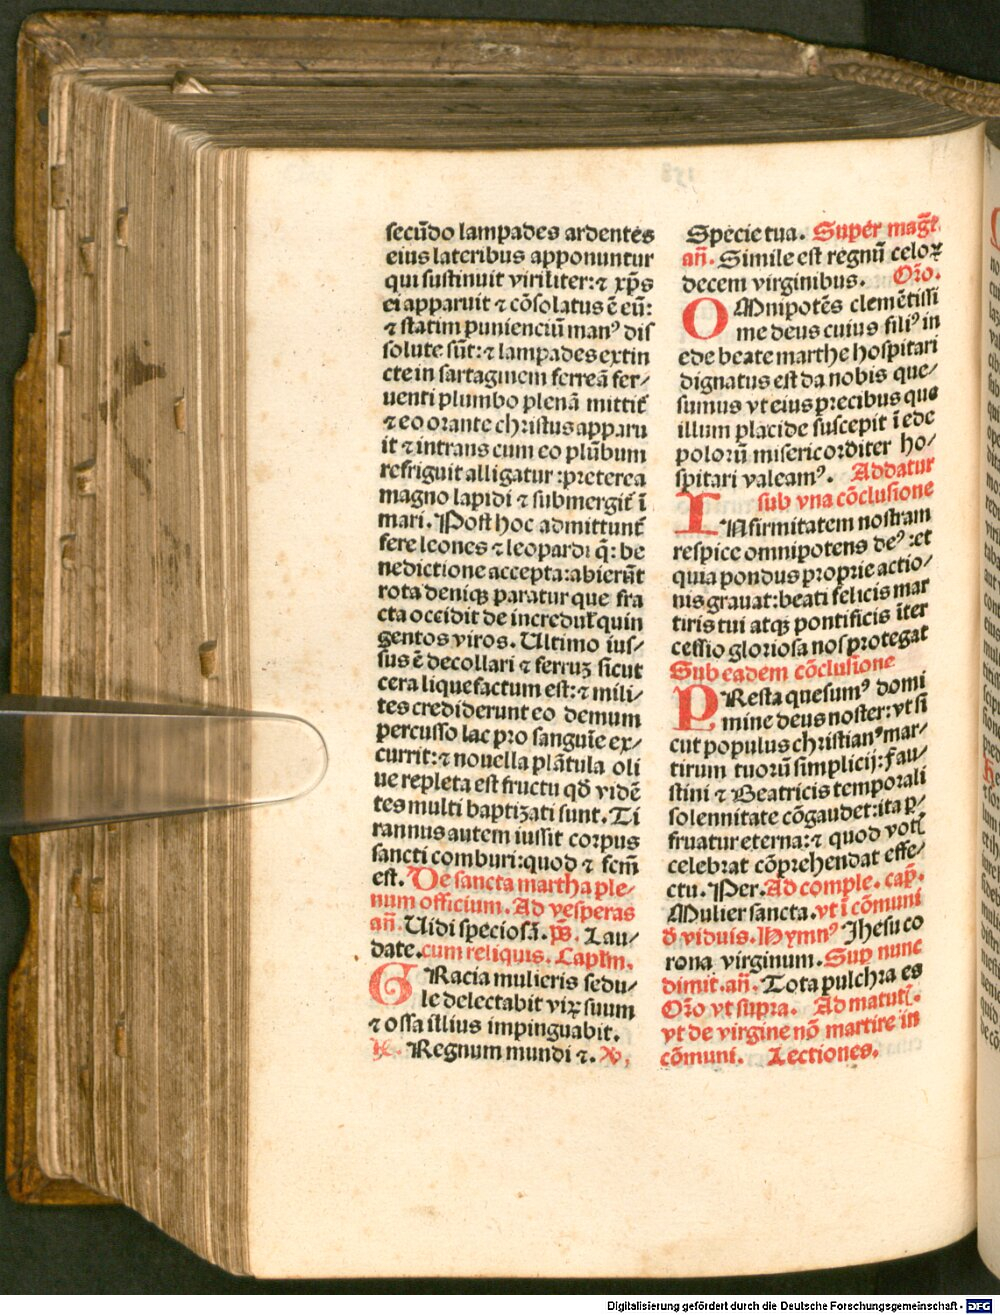 secūdo lampades ardentes
eius lateribus apponuntur
qui sustinuit viriliter: ⁊ xp̄s
ei apparuit ⁊ cōsolatus ē eū:
⁊ statim punienciū manꝰ dis
solute sūt: ⁊ lampades extin
cte in sartaginem ferreā fer⸗
uenti plumbo plenā mittit̄
⁊ eo orante christus apparu
it ⁊ intrans cum eo plūbum
refriguit alligatur: preterea
magno lapidi ⁊ submergit̄ ī
mari. Post hoc admittunt̄
fere leones ⁊ leopardi q̄: be
nedictione accepta: abierūt
rota deniqꝫ paratur que fra
cta occidit de incredul̄ quin
gentos viros. Ultimo ius⸗
sus ē decollari ⁊ ferruꝫ sicut
cera liquefactum est: ⁊ mili⸗
tes crediderunt eo demum
percusso lac pro sanguīe ex⸗
currit: ⁊ nouella plātula oli
ue repleta est fructu qđ vidē
tes multi baptizati sunt. Ti
rannus autem iussit corpus
sancti comburi: quod ⁊ fcm̄
est. De sancta martha ple⸗
num officium. Ad vesperas
añ. Uidi speciosā. ps̄. Lau⸗
date. cum reliquis. Capl̄m.
GRacia mulieris sedu⸗
le delectabit viꝝ suum
⁊ ossa illius impinguabit.
℟. Regnum mundi ⁊. ℣,
Specie tua. Super maḡt.
añ. Simile est regnū celoꝝ
decem virginibus. Oꝛ̄o.
OMnipotēs clemētissi
me deus cuius filiꝰ in
ede beate marthe hospitari
dignatus est da nobis que⸗
sumus vt eius precibus que
illum placide suscepit ī ede
polorū misericorditer ho⸗
spitari valeamꝰ. Addatur
sub vna cōclusione
INfirmitatem nostram
respice omnipotens deꝰ: et
quia pondus proprie actio⸗
nis grauat: beati felicis mar
tiris tui atqꝫ pontificis īter
cessio gloriosa nos protegat
Sub eadem cōclusione
PResta quesumꝰ domi
mine deus noster: vt si
cut populus christianꝰ mar⸗
tirum tuorū simplicij: fau⸗
stini ⁊ Beatricis temporali
solennitate cōgaudet: ita ꝑ⸗
fruatur eterna: ⁊ quod voti
celebrat cōprehendat effe⸗
ctu. Per. Ad comple. cap̄.
Mulier sancta. vt ī cōmuni
đ viduis. Hymnꝰ Jhesu co
rona virginum. Sup̄ nunc
dimit. añ. Tota pulchra es
Oꝛ̄o vt supra. Ad matut̄.
vt de virgine nō martire in
cōmuni. Lectiones.
Digitalisierung gefördert durch die Deutsche Forschungsgemeinschaft - DFG